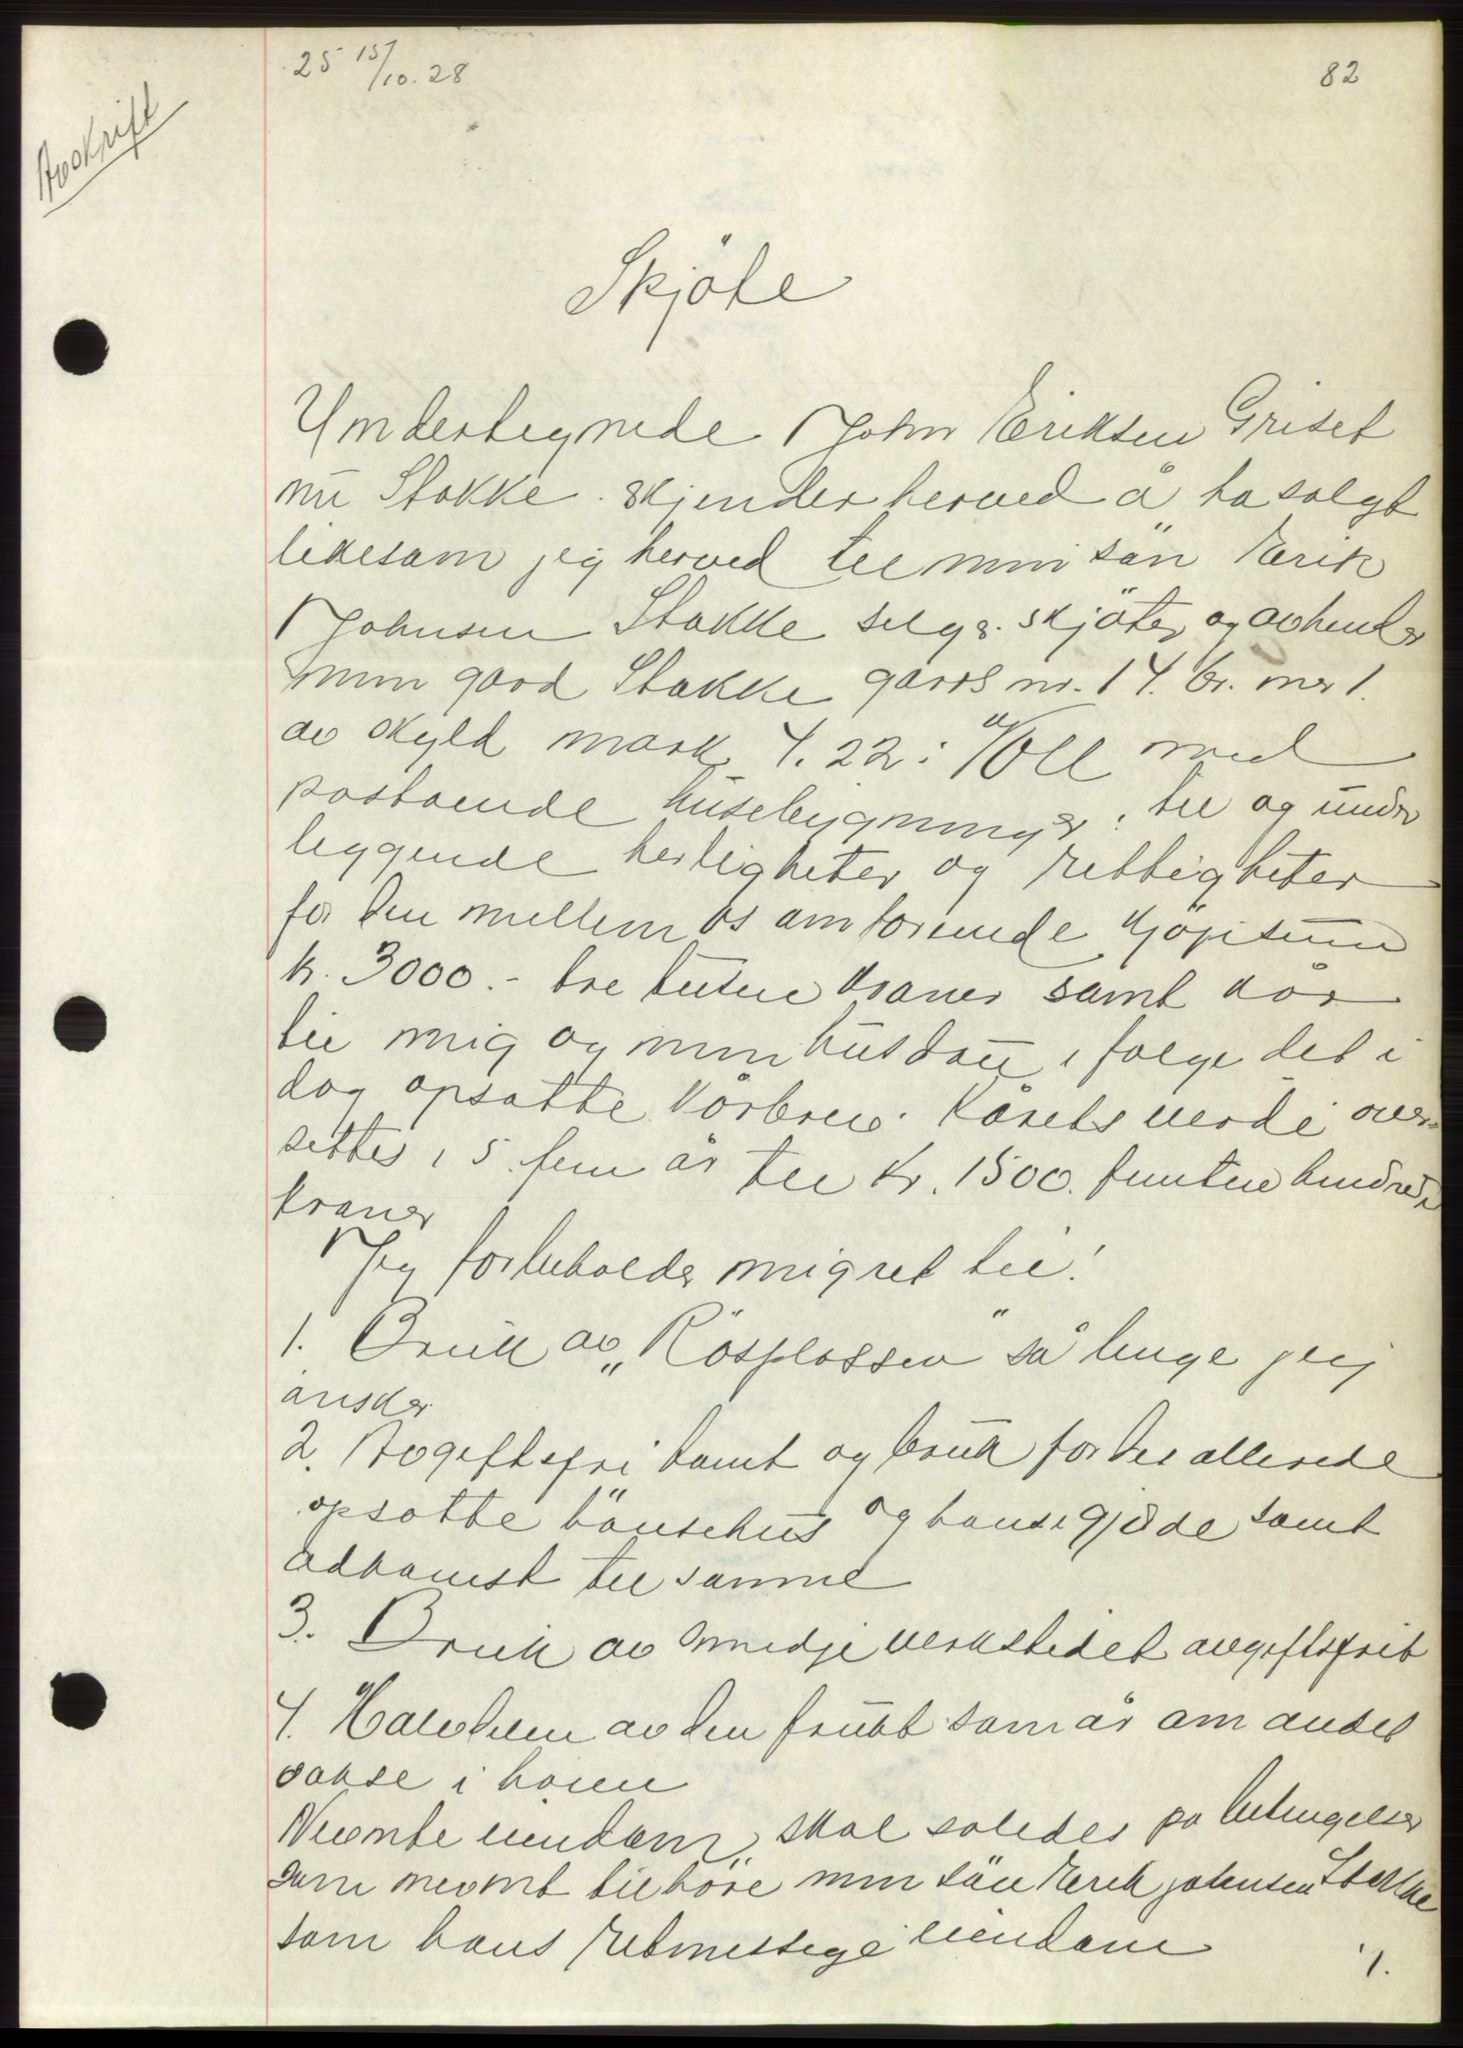 25 15/10. 28
82
Avskrift
Skjöte
Undertegnede John Eriksen Griset
nu Stokke. skjender herved å ha solgt
likesom jeg herved til min sön Erik
Johnsen Stokke selger. skjöter og avhender
min gård Stokke gårds nr. 14. br. nr 1.
av skyld mark 4.22 i Voll med
påstående husebygninger: til og under
liggende herligheter og rettigheter
for den mellem os omforenede kjöpesum
kr. 3000.- tre tusen kroner samt kår
til mig og min hustru i følge det i
dag opsatte kårbrev. Kårets verdi over-
settes i 5 fem år til kr. 1500. femten hundrede
kroner
Jeg forbeholder mig ret til:
1. Bruk av „Rösplassen" så lenge jeg
ønsker
2. Avgiftsfri tomt og bruk for det allerede
opsatte hönsehus og hönsegjærde samt
adkomst til samme
3. Bruk av smedje verkstedet avgiftsfrit
4. Halvdelen av den frukt som år om andet
vokse i haven
Nevnte eiendom skal således på betingelser
som nevnt tilhöre min sön Erik Johnsen Stokke
som hans retmessige eiendom
./.